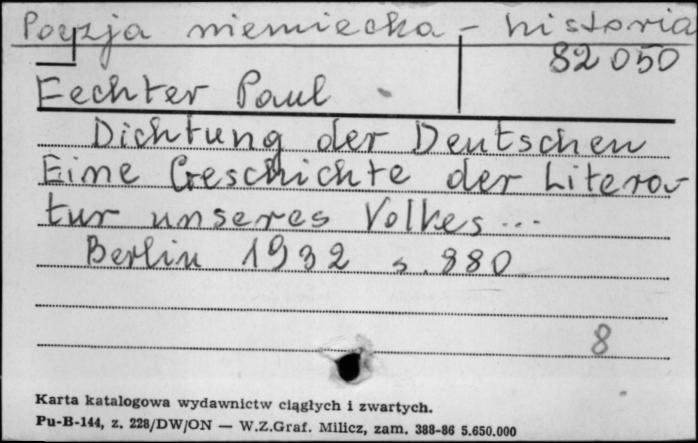 Poezja niemiecka - historia
82 050
Fechter Paul
Dichtung der Deutschen
Eine Geschichte der Litera-
tur unseres Volkes...
Berlin 1932 s. 880
8
Karta katalogowa wydawnictw ciągłych i zwartych.
Pu-B-144, z. 228/DW/ON — W.Z.Graf. Milicz, zam. 388-86 5.650.000